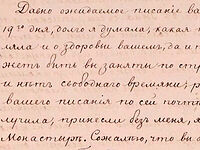 Давно ожидаемое писание ва
19го дня, долго я думала, какая п
ляла и о здоровьи вашем, да и
жетъ быть вы заняты по стр
и нѣтъ свободнаго времяни; р
вашего писания по сей почты
лучила; принесли безъ меня, я
Монастырѣ. Сожалѣю, что вы с